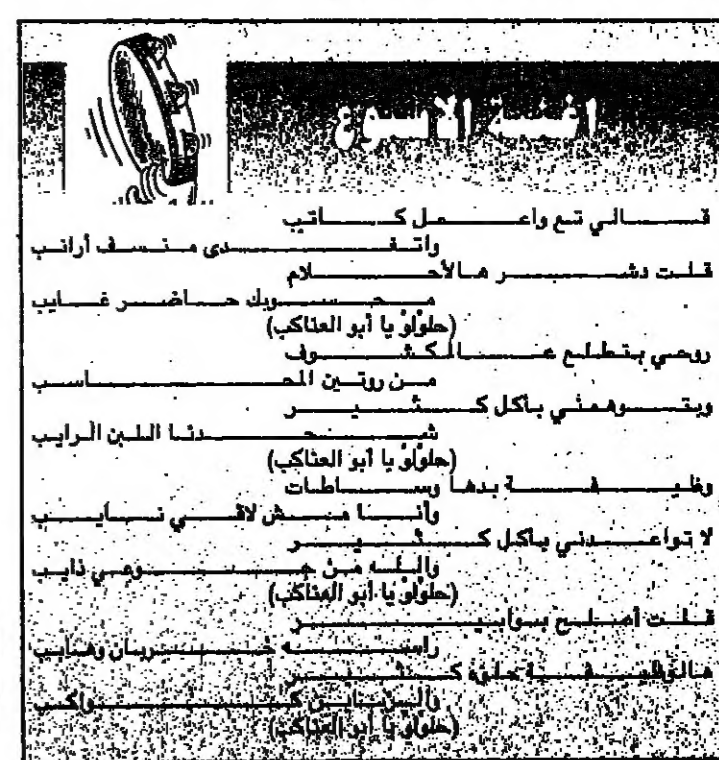 اغنية الاسبوع
قالي تع واعمل كاتب
واتغدى منسف أرانب
قلت دشر هالأحلام
محسوبك حاضر غايب
(حلولو يا أبو العناكب)
روحي بتطلع عالمكشوف
من روتين المحاسب
وبتوهمني بأكل كثير
شحدنا اللبن الرايب
(حلولو يا أبو العناكب)
وظيفة بدها وساطات
وأنا مش لاقي نايب
لا تواعدني بأكل كثير
والله من جوعي ذايب
(حلولو يا أبو العناكب)
قلت أصلح بوابير
راسه خربان وهايب
هالوظيفة حلوه كثير
والزباين كواكب
(حلولو يا أبو العناكب)